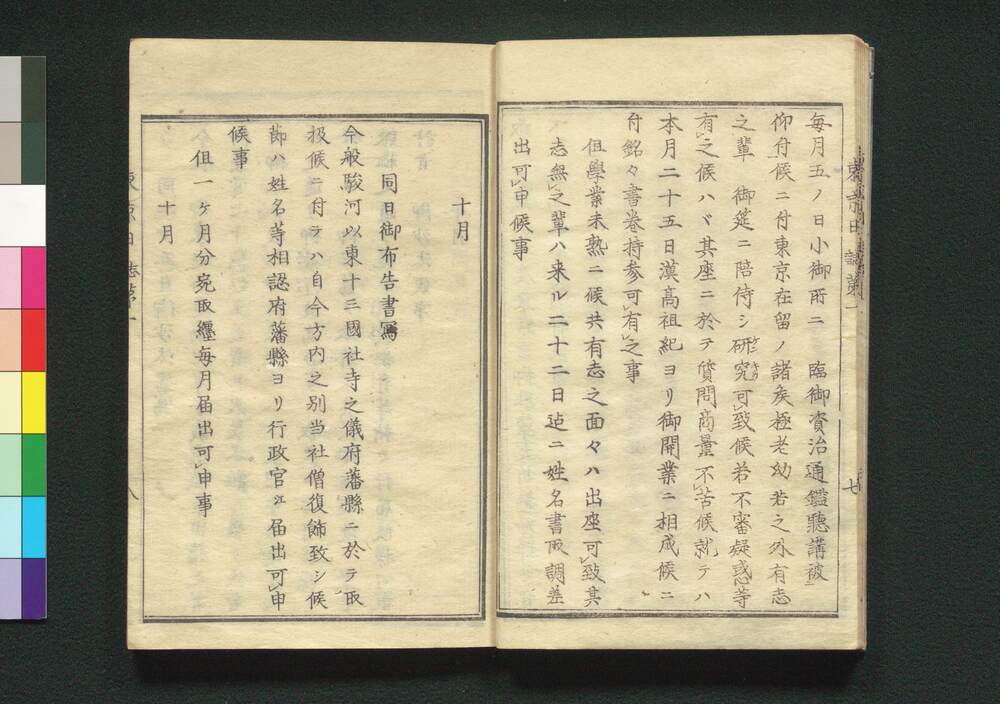 毎月五ノ日小御所ニ　臨御資治通鑑聽講被
仰付候ニ付東京在留ノ諸矦極老幼若之外有志
之輩　御筵ニ陪侍シ研究可致候若不審疑惑等
有之候ハヾ其座ニ於テ質問商量不苦候就テハ
本月二十五日漢高祖紀ヨリ御開業ニ相成候ニ
付銘々書巻持参可有之事
但學業未熟ニ候共有志之面々ハ出座可致其
志無之輩ハ来ル二十二日迠ニ姓名書取調差
出可申候事
十月
同日御布告書寫
今般駿河以東十三國社寺之儀府藩縣ニ於テ取
扱候ニ付テハ自今方内之別当社僧復飾致シ候
節ハ姓名等相認府藩縣ヨリ行政官江届出可申
候事
但一ヶ月分宛取纒毎月届出可申事
十月